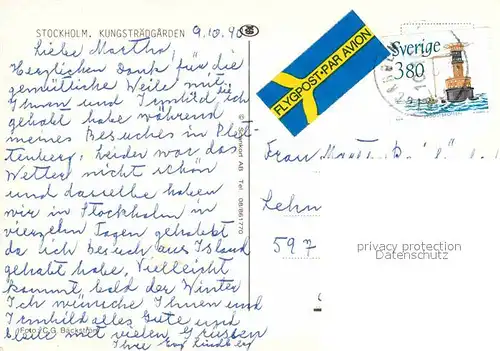 STOCKHOLM. KUNGSTRÄDGÅRDEN
9.10.90
Liebe Martha,
Herzlichen Dank für die
gemütliche Weile mit
Ihnen und Irmhild ich
gehabt habe während
meines Besuches in
tenberg, leider war das
Wetter nicht schön
und dasselbe haben
wir in Stockholm in
vierzehn Tagen gehabt
da ich Besuch aus Island
gehabt habe. Vielleicht
kommt bald der Winter
Ich wünsche Ihnen und
Irmhild alles Gute und
bleibe mit vielen Grüssen
Ihre Lindberg
Foto: C.G. Bäckström
© Storkort AB Tel. 08/861770
FLYGPOST·PAR AVION
Sverige
380
Frau
Lehn
597
privacy protection
watermark